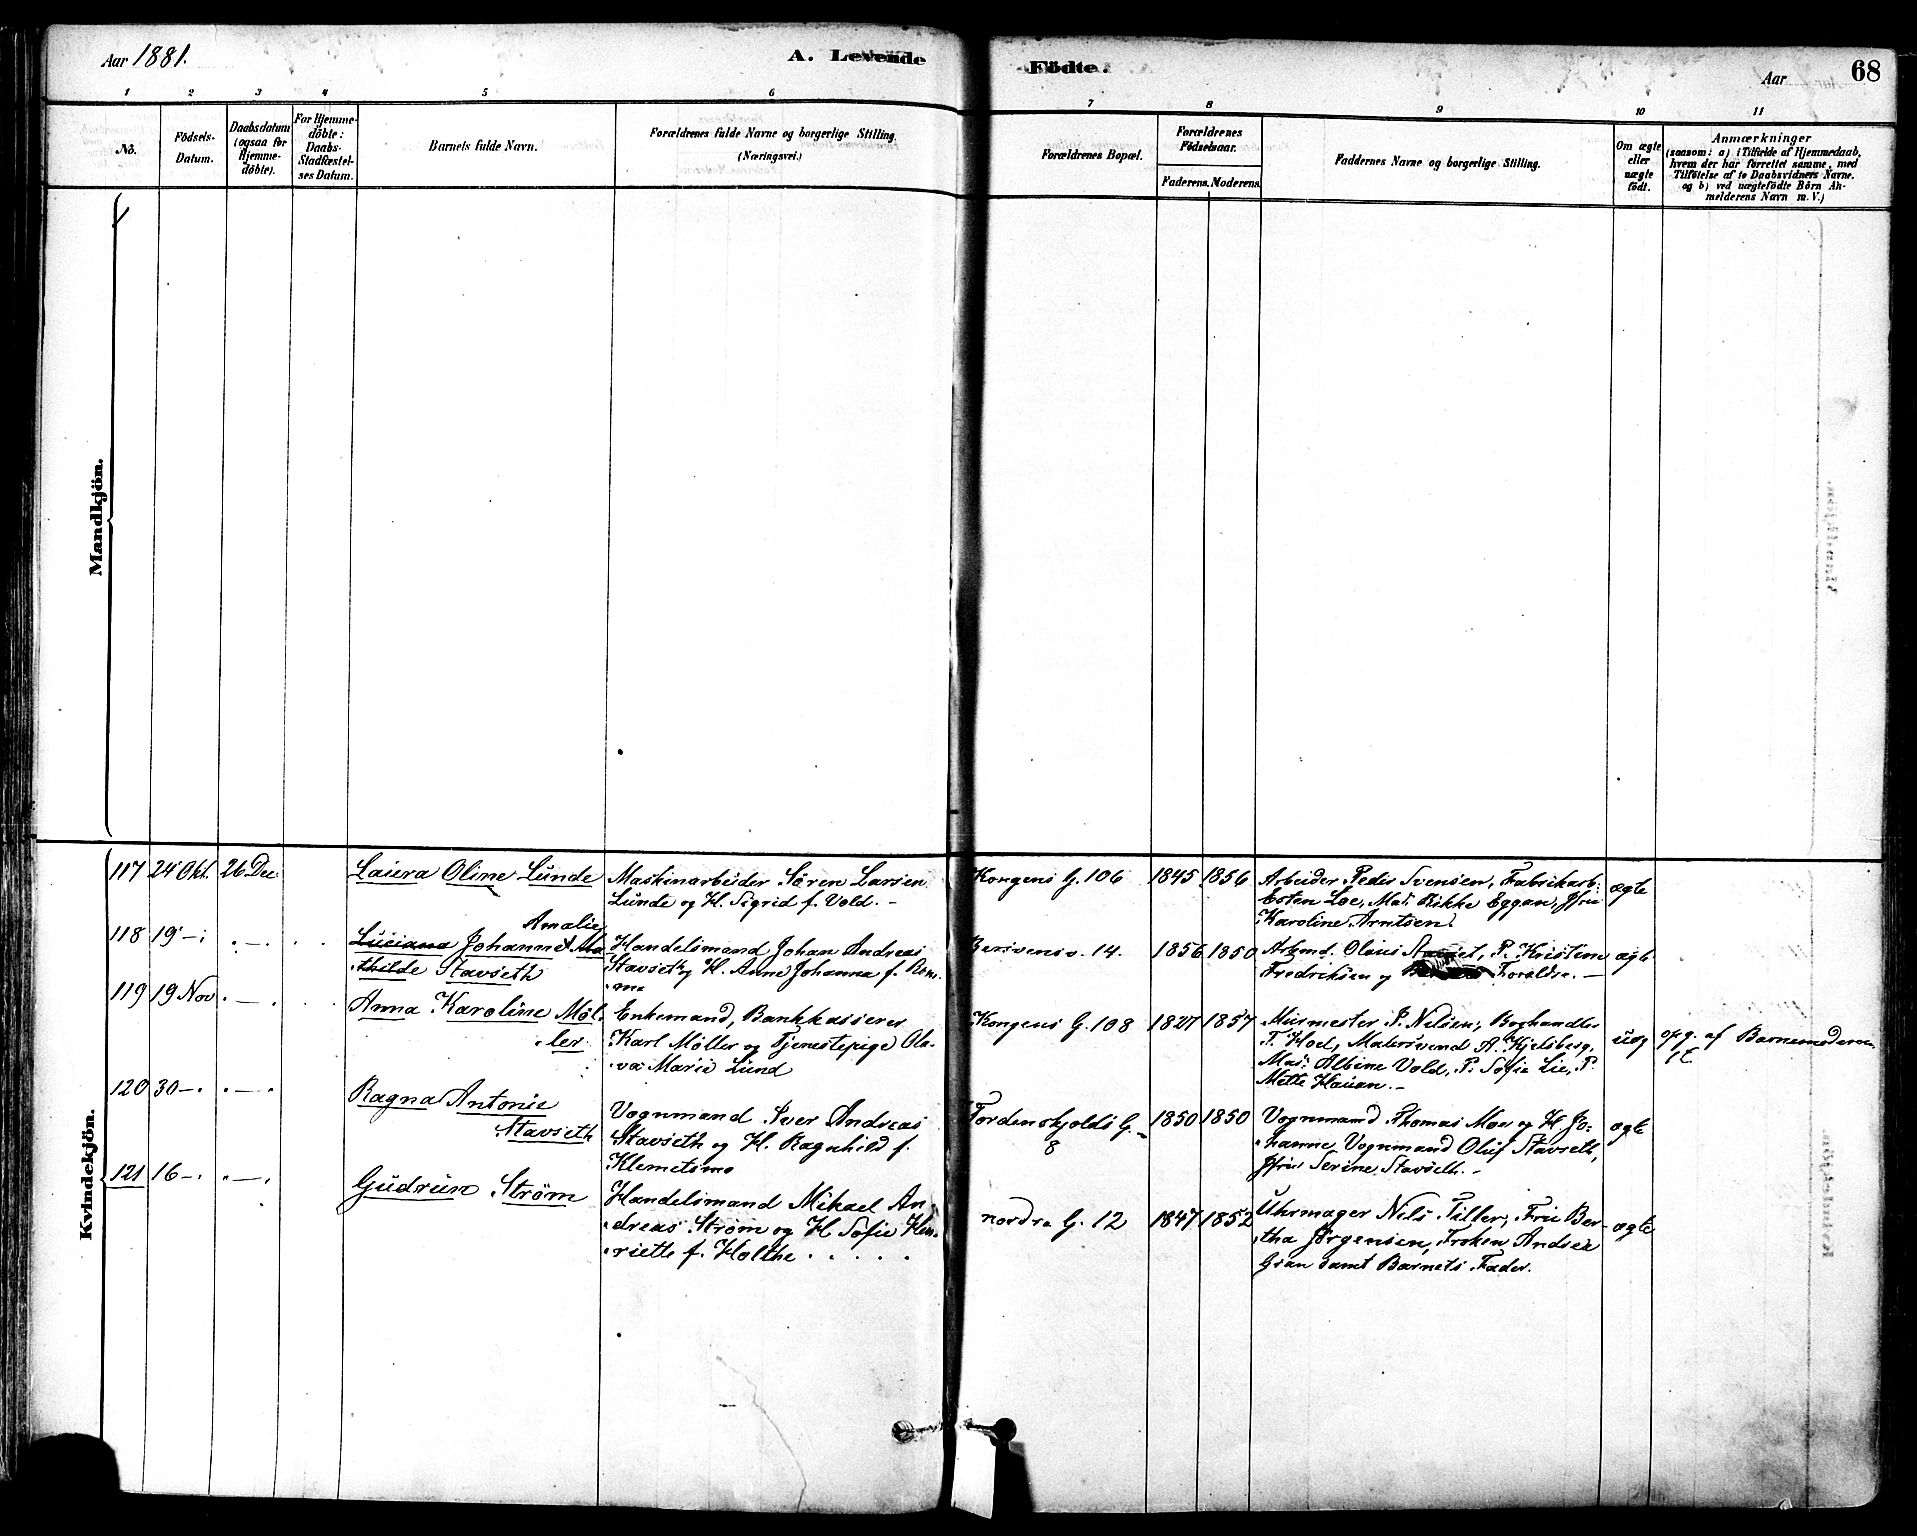 Aar 1881.
A. Levende
Födte.
Aar
68
1 2 3 4 5 6 7 8 9 10 11
No.
Födsels-
Datum.
Daabsdatum
(ogsaa for
Hjemme-
döbte).
For Hjemme-
döbte:
Daabs-
Stadfæstel-
ses Datum.
Barnets fulde Navn.
Forældrenes fulde Navne og borgerlige Stilling.
(Næringsvei.)
Forældrenes Bopæl.
Forældrenes
Födselsaar.
Faderens. Moderens.
Faddernes Navne og borgerlige Stilling.
Om ægte
eller
uægte
födt.
Anmærkninger
(saasom: a) i Tilfælde af Hjemmedaab,
hvem der har forrettet samme, med
Tilföielse af to Daabsvidners Navne.
og b) ved uægtefödte Börn An-
melderens Navn m. V.)
Mandkjön.
Kvindekjön.
117 24 Okt. 26 Dec.
Laura Oline Lunde
Maskinarbeider Sören Larsen
Lunde og H. Sigrid f. Vold. -
Kongens G. 106
1845 1856
Arbeider Peder Svensen, Fabrikarb:
Esten Loe, Mad: Rikke Eggan, Jfru
Karoline Arntsen.
ægte
118 19 -
Amalie
Luciana Johanne Ma
thilde Stavseth
Handelsmand Johan Andreas
Stavseth og H. Anne Johanna f. Rem-
me
14.
1856 1850
Arbmd. Olaus P. Kristine
Fredriksen og Foraldre. -
ægte
119 19 Nov.
Anna Karoline Mol-
ler
Enkemand, Bankkasserer
Karl Møller og Tjenestepige Ola-
va Marie Lund
Kongens G. 108
1827 1857
Murmester P. Nelsen, Boghandler
F. Hoel, Malersvend A. Kjelsberg,
Mad: Albine Vold, P. Sofie Lie, P.
Mette Hauan. -
uæg
opg. af Barnemoderen
120 30 -
Ragna Antonie
Stavseth
Vognmand Iver Andreas
Stavseth og H. Ragnhild f.
Klemetsmo
Tordenskjolds G.
8
1850 1850
Vognmand Thomas Moe og H. Jo-
hanne, Vognmand Oluf Stavseth,
Jfru Serine Stavseth. -
ægte
121 16 -
Gudrun Strøm
Handelsmand Mikael An-
dreas Strøm og H. Sofie Hen-
riette f. Holthe
nordre G. 12
1847 1852
Uhrmager Nils Tiller, Fru Ber-
tha Jørgensen, Frøken Andrea
Gran samt Barnets Fader.
ægte